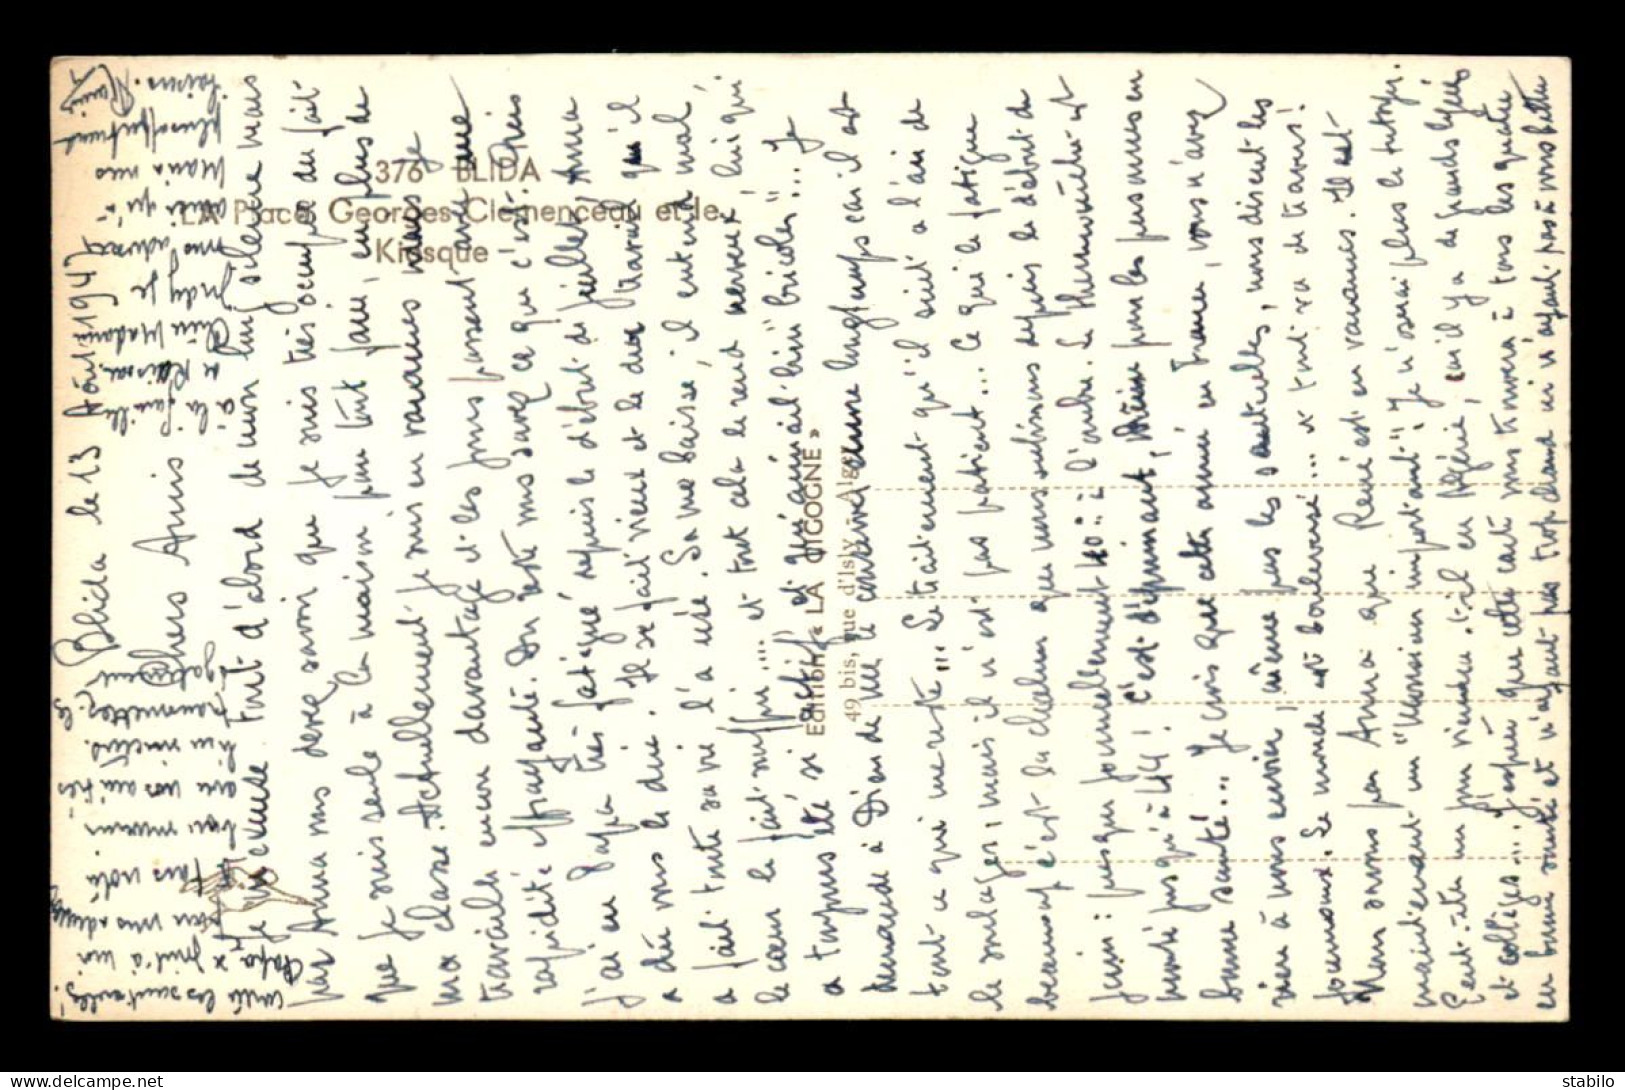 376 BLIDA
LA Place Georges Clemenceau et le
Kiosque -
Edition « LA CIGOGNE »
49 bis, rue d'Isly - Alger
Blida le 13 Août 1947
Chers Amis
Je m'excuse tout d'abord de mon long silence mais
par Anna vous devez savoir que je suis très occupée du fait
que je suis seule à la maison pour tout faire, en plus de
ma classe. Actuellement je suis en vacances mais je
travaille encore davantage et les jours passent avec une
rapidité effrayante. Du reste vous savez ce que c'est. Puis
j'ai eu Papa très fatigué depuis le début de juillet, Anna
a dû vous le dire. Il se fait vieux et le dur travail qu'il
a fait toute sa vie l'a usé. Sa vue baisse, il entend mal,
le cœur le fait souffrir.... et tout cela le rend nerveux lui qui
a toujours été si actif et qui aimait bien "bricoler"... je
demande à Dieu de me le conserver encore longtemps car il est
tout ce qui me reste... Le traitement qu'il suit a l'air de
le soulager, mais il n'est pas patient... Ce qui le fatigue
beaucoup c'est la chaleur que nous subissons depuis le début de
juin : presque journellement 40° à l'ombre. Le thermomètre est
monté jusqu'à 44 ! C'est déprimant, même pour les personnes en
bonne santé... Je crois que cette année en France, vous n'avez
rien à nous envier, même pas les sauterelles, nous disent les
journaux. Le monde est bouleversé.... et tout va de travers !
Nous savons par Anna que René est en vacances. Il est
maintenant un "Monsieur important", je n'oserai plus le tutoyer.
Peut-être un jour viendra-t-il en Algérie, car il y a de grands lycées
et collèges... J'espère que cette carte vous trouvera tous les quatre
en bonne santé et n'ayant pas trop chaud ni n'ayant pas à vous battre
contre les sauterelles !
Papa se joint à moi
pour vous adresser
bons
avec nos amitiés
bien sincères.
Transmettez-les
également
à la famille
Chère Madame